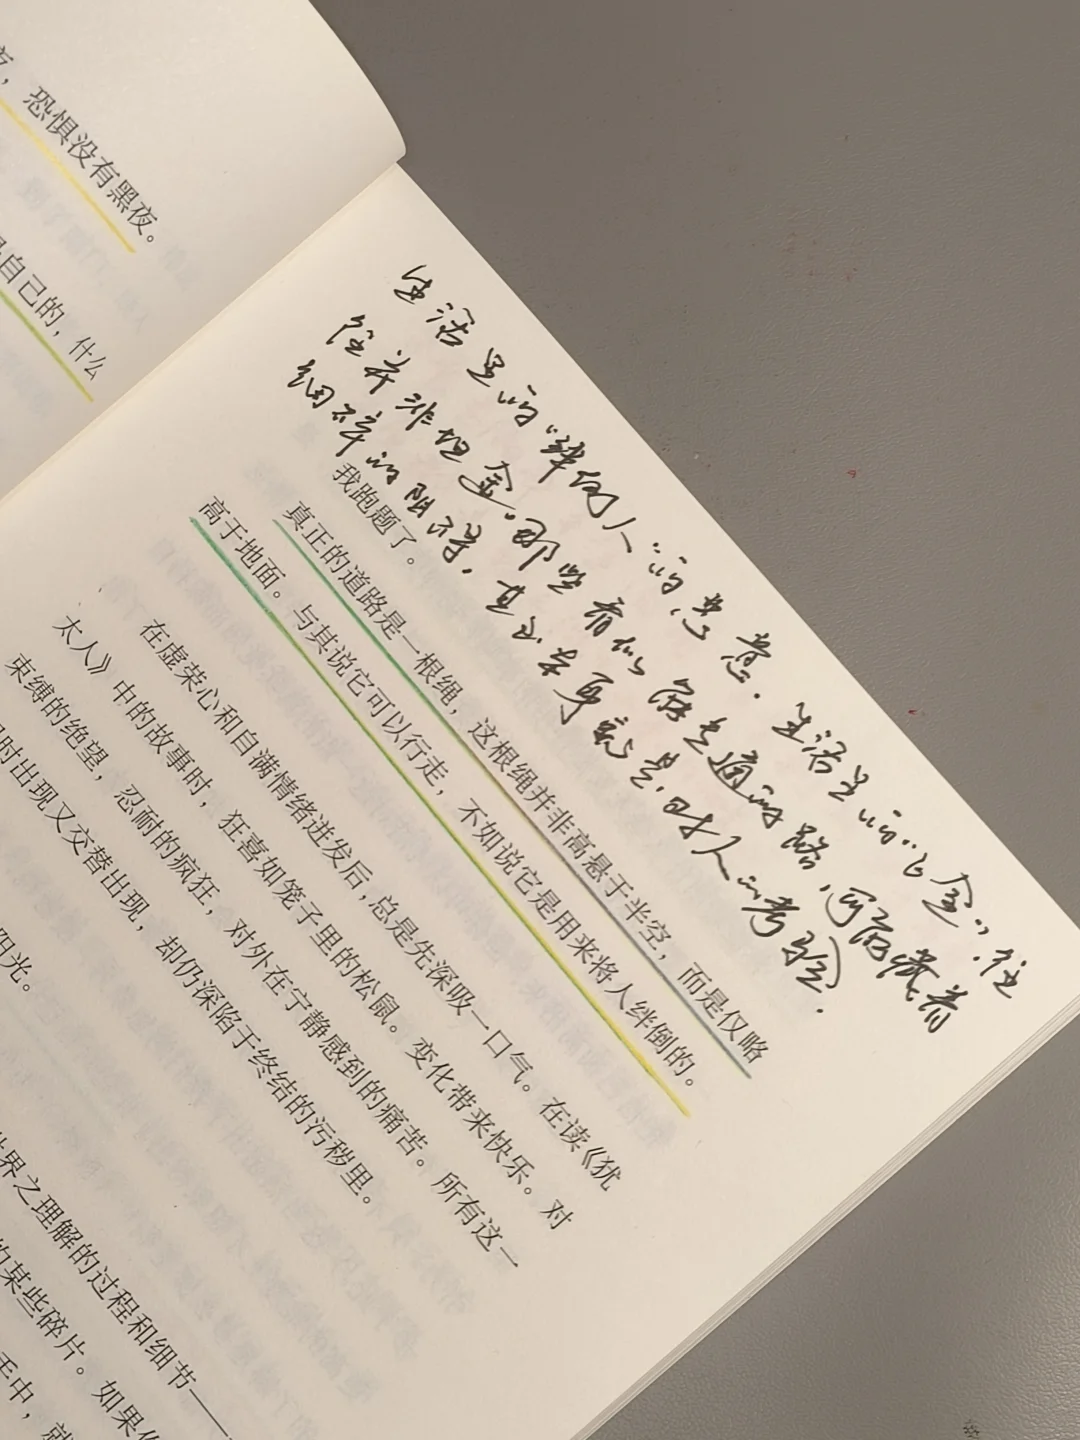 恐惧没有黑夜。
自己的，什么
生活里的“绊倒人”的恶意，生活里的“必全”，往
往并非坦
那些看似能走通的路，可能藏着
细碎的阻碍，甚至本身就是对人的考验。
我跑题了。
真正的道路是一根绳，这根绳并非高悬于半空，而是仅略
高于地面。与其说它可以行走，不如说它是用来将人绊倒的。
在虚荣心和自满情绪迸发后，总是先深吸一口气。在读《犹
太人》中的故事时，狂喜如笼子里的松鼠。变化带来快乐。对
束缚的绝望，忍耐的疯狂，对外在宁静感到的痛苦。所有这一
时出现又交替出现，却仍深陷于终结的污秽里。
阳光。
界之理解的过程和细节——
的某些碎片。如果
手中，就